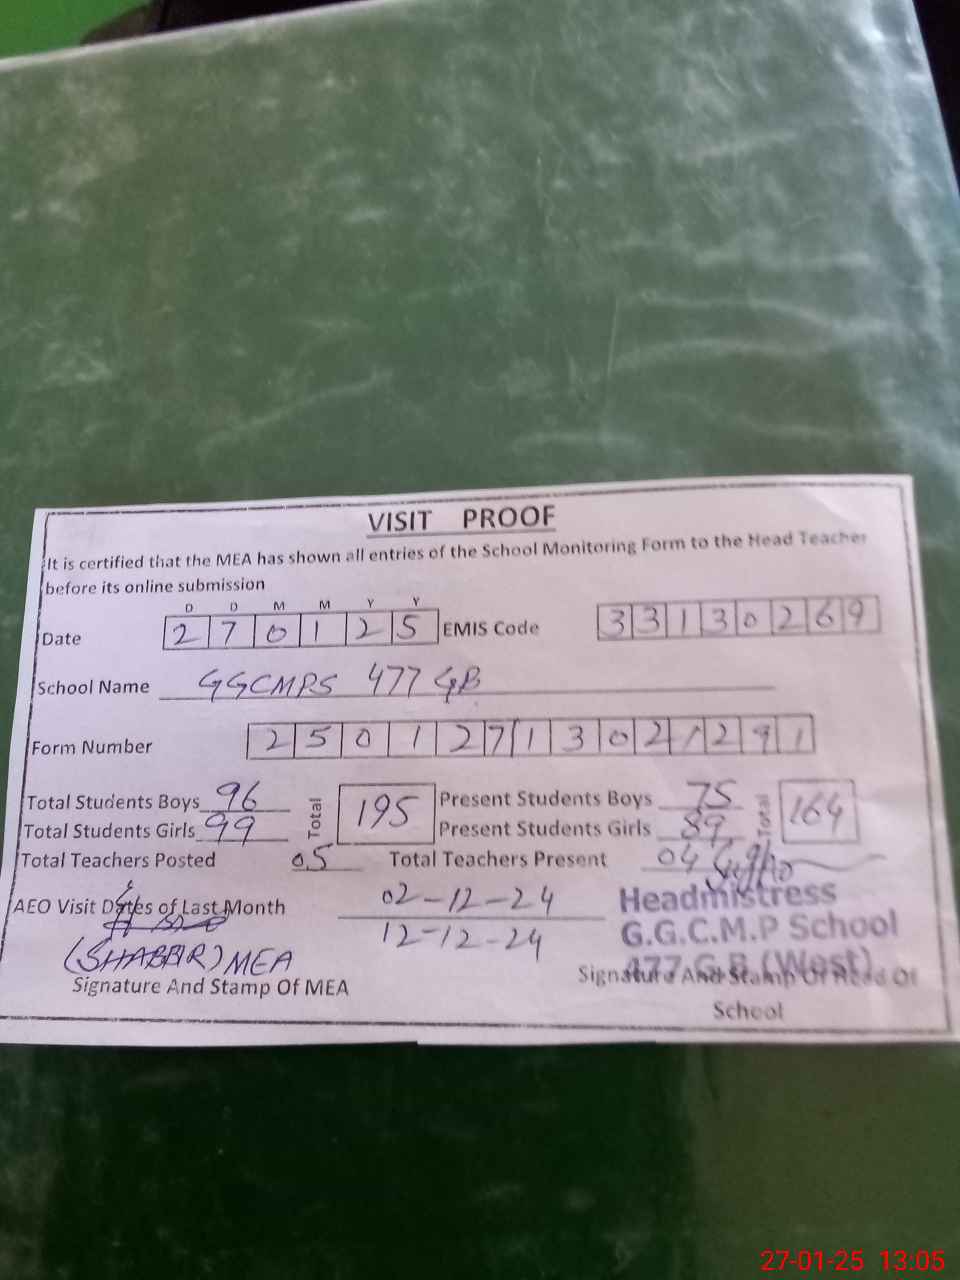 VISIT PROOF
It is certified that the MEA has shown all entries of the School Monitoring Form to the Head Teacher
before its online submission
D D M M Y Y
Date 2 7 0 1 2 5 EMIS Code 3 3 1 3 0 2 6 9
School Name GGCMPS 477 GB
Form Number 2 5 0 1 2 7 1 3 0 2 1 2 9 1
Total Students Boys 96 Total 195 Present Students Boys 75 Total 164
Total Students Girls 99 Present Students Girls 89
Total Teachers Posted 05 Total Teachers Present 04
AEO Visit Dates of Last Month 02-12-24
12-12-24
Headmistress
G.G.C.M.P School
477 G.B (West)
(SHABBIR) MEA
Signature And Stamp Of MEA
Signature And Stamp Of Head Of
School
27-01-25 13:05